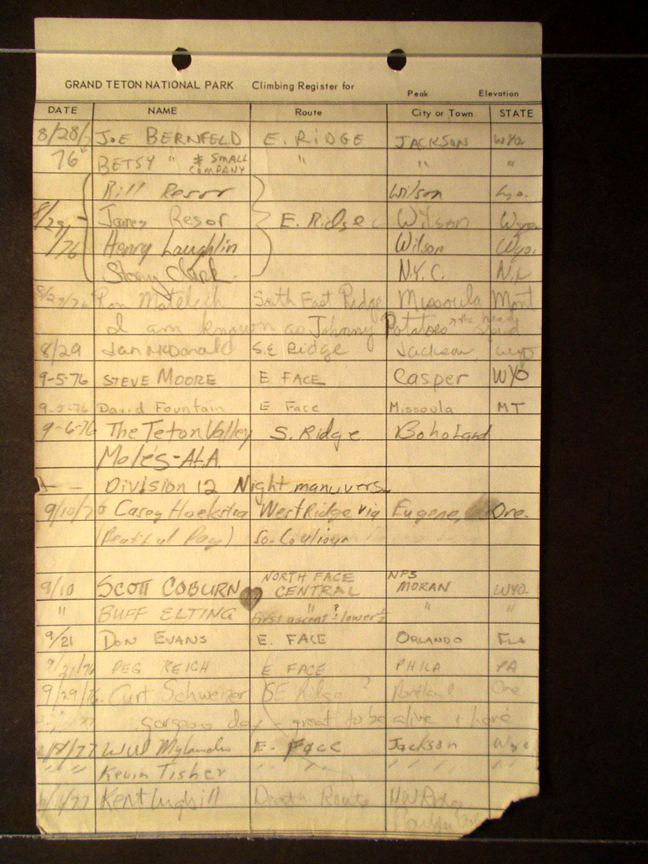 GRAND TETON NATIONAL PARK Climbing Register for
Peak Elevation
DATE NAME Route City or Town STATE
8/28/ JOE BERNFELD E. RIDGE JACKSON WYO.
76 BETSY " & SMALL COMPANY " " "
Bill Resor Wilson Wyo.
8/29/ James Resor E. Ridge Wilson Wyo.
/76 Henry Laughlin Wilson Wyo.
Story Clark N.Y.C. N.Y.
Ron Matelich South East Ridge Missoula Mont
I am known as Johnny "Potatoes" the
8/29 Ian McDonald S.E Ridge Jackson WYO
9-5-76 STEVE MOORE E FACE Casper WYO
9-5-76 David Fountain E Face Missoula MT
9-6-76 The Teton Valley S. Ridge Boholand
Moles-ALA
Division 12 Night manuvers
9/10/76 Casey Hoekstra West Ridge via Eugene, Ore.
(Beautiful Day) So. Couliour
9/10 SCOTT COBURN NORTH FACE CENTRAL NFS MORAN WYO.
" BUFF ELTING " First ascent? lower ½ " "
9/21 DON EVANS E. FACE ORLANDO FLA
9/21/76 PEG REICH E FACE PHILA PA
9/29/76 Curt Schweizer SE Ridge ? Portland Ore
gorgeous day - great to be alive & here
/77 Will E. Face Jackson Wyo
" " Kevin Tisher " " " "
/77 Kent Route